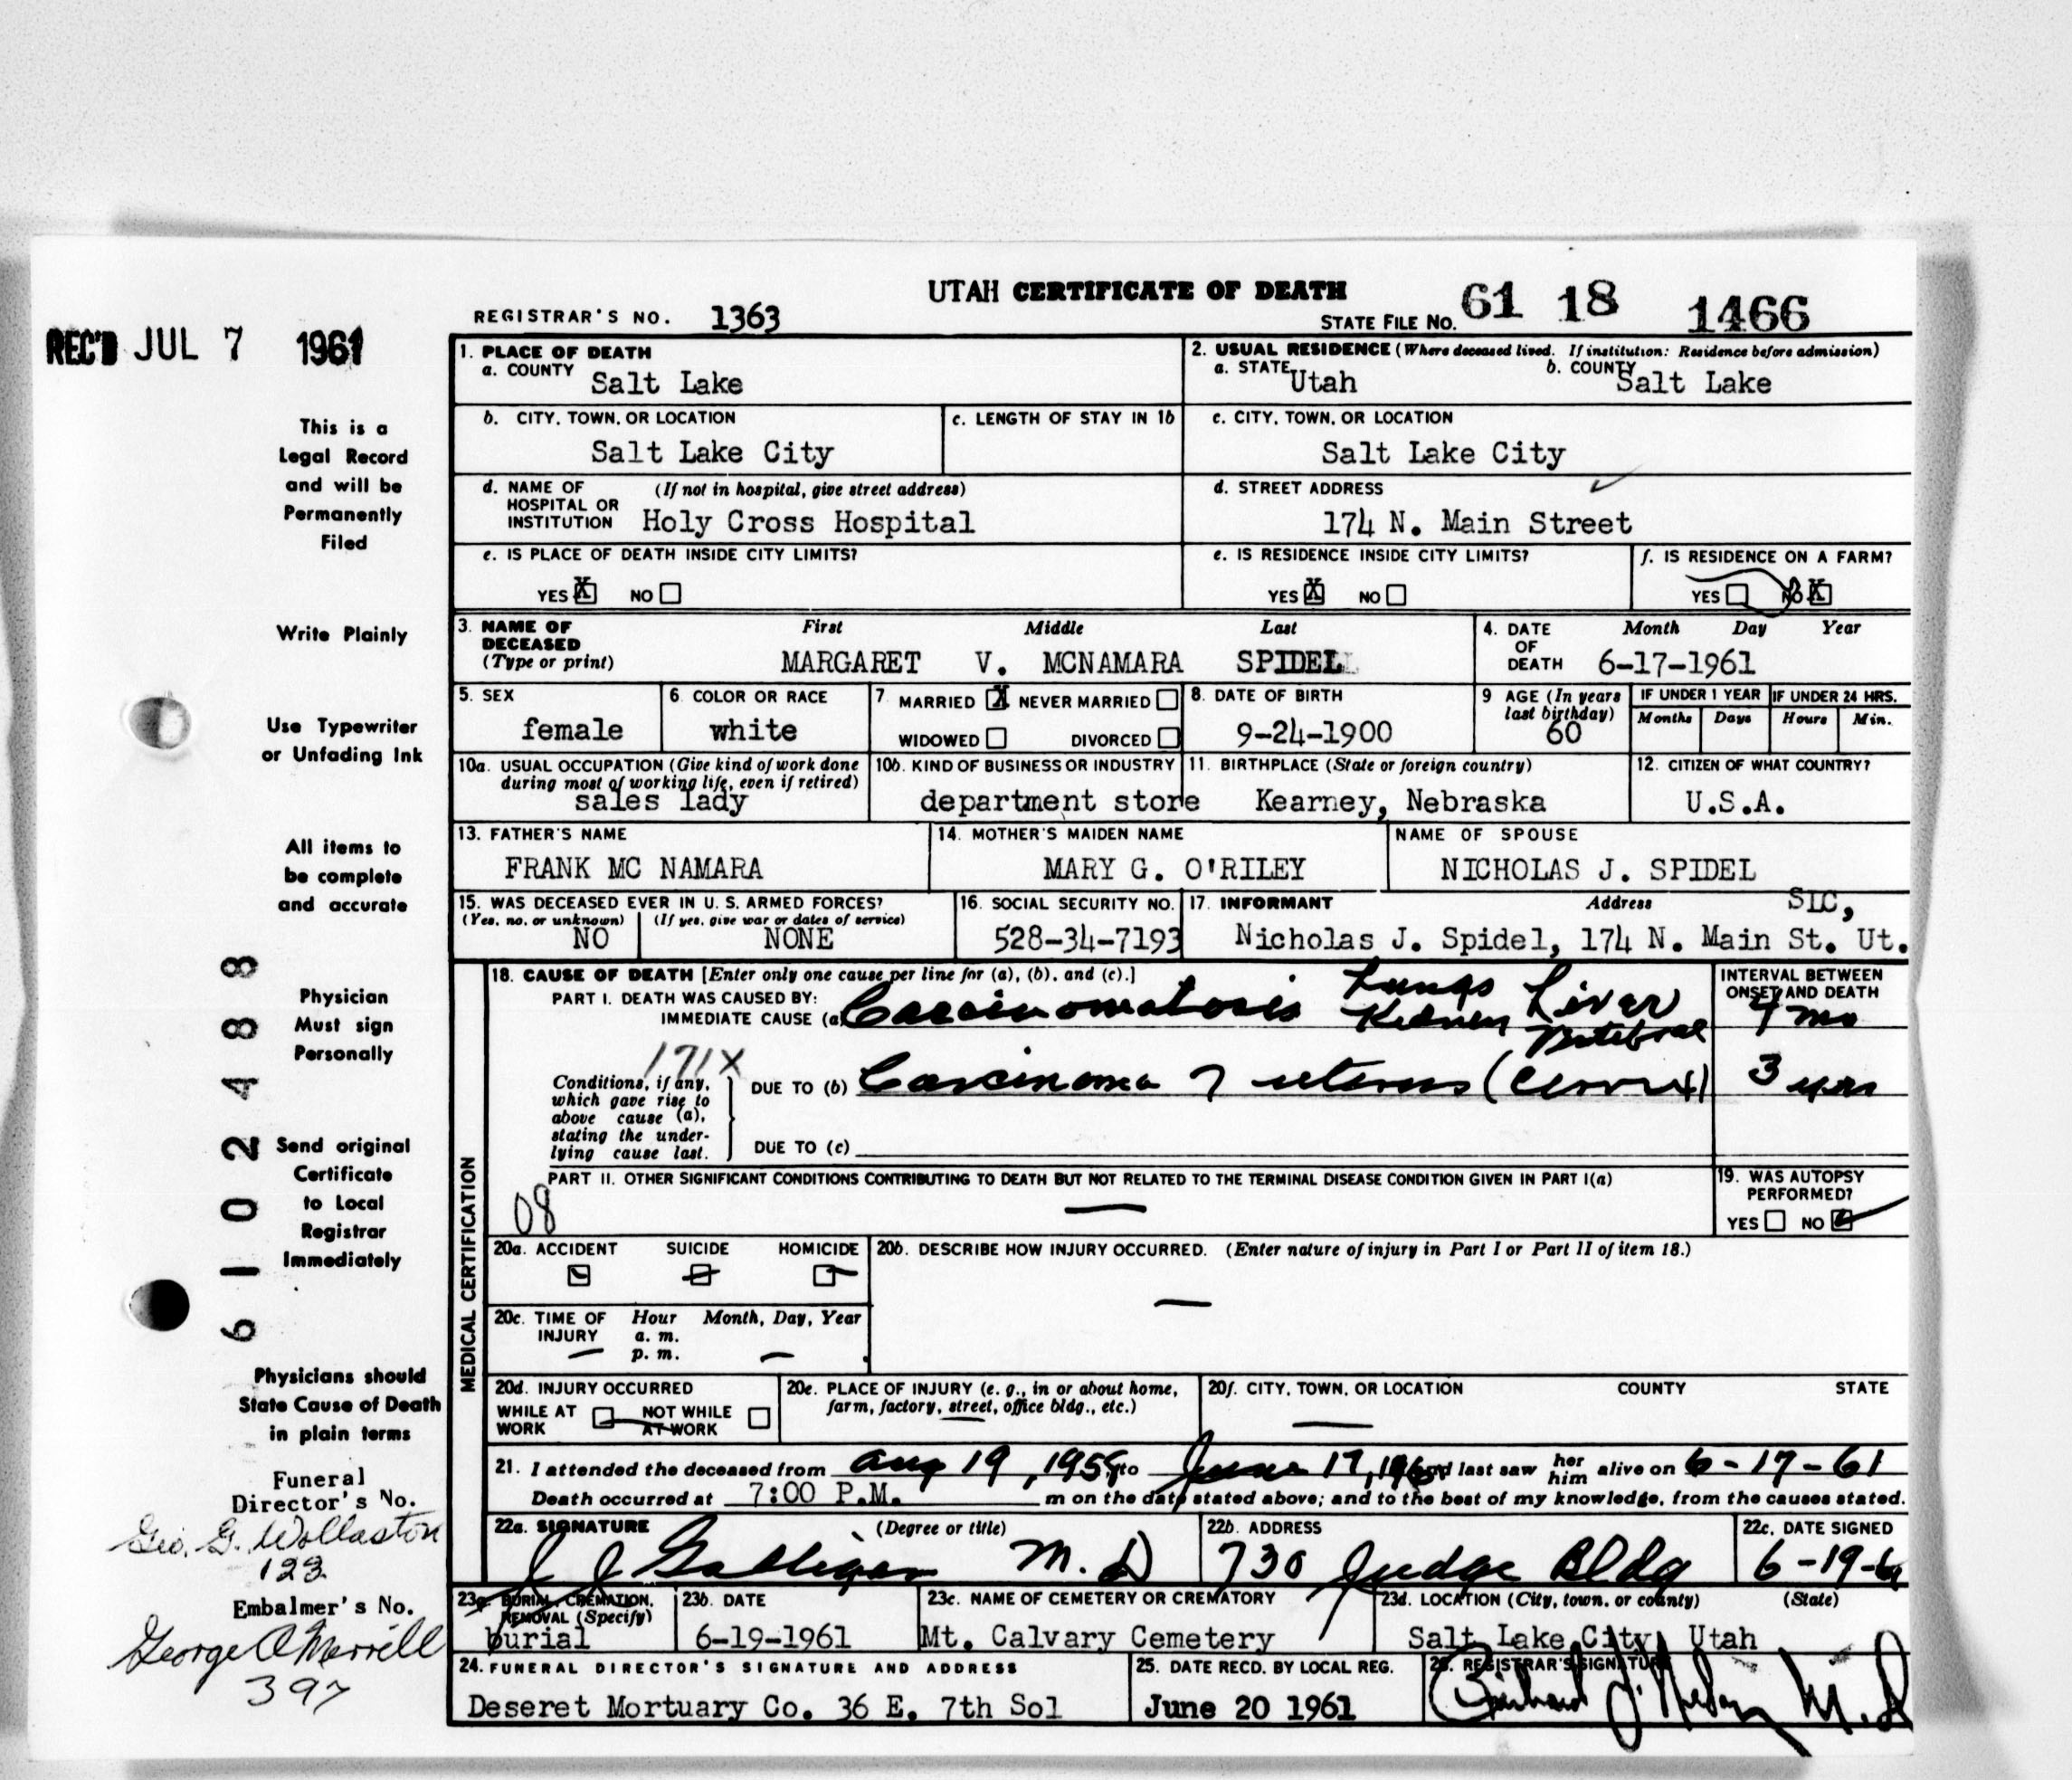 UTAH CERTIFICATE OF DEATH
REGISTRAR'S NO. 1363
STATE FILE NO. 61 18 1466
REC'D JUL 7 1961
This is a
Legal Record
and will be
Permanently
Filed
Write Plainly
Use Typewriter
or Unfading Ink
All items to
be complete
and accurate
Physician
Must sign
Personally
Send original
Certificate
to Local
Registrar
Immediately
Physicians should
State Cause of Death
in plain terms
Funeral
Director's No.
Geo. G. Wollaston
123
Embalmer's No.
George Merrill
397
6102488
1. PLACE OF DEATH
a. COUNTY Salt Lake
2. USUAL RESIDENCE (Where deceased lived. If institution: Residence before admission)
a. STATE Utah b. COUNTY Salt Lake
b. CITY, TOWN, OR LOCATION
Salt Lake City
c. LENGTH OF STAY IN 1b
c. CITY, TOWN, OR LOCATION
Salt Lake City
d. NAME OF (If not in hospital, give street address)
HOSPITAL OR
INSTITUTION Holy Cross Hospital
d. STREET ADDRESS
174 N. Main Street
e. IS PLACE OF DEATH INSIDE CITY LIMITS?
YES X NO
e. IS RESIDENCE INSIDE CITY LIMITS?
YES X NO
f. IS RESIDENCE ON A FARM?
YES NO X
3. NAME OF DECEASED (Type or print)
First Middle Last
MARGARET V. MCNAMARA SPIDEL
4. DATE OF DEATH Month Day Year
6-17-1961
5. SEX
female
6. COLOR OR RACE
white
7. MARRIED X NEVER MARRIED
WIDOWED DIVORCED
8. DATE OF BIRTH
9-24-1900
9 AGE (In years last birthday)
60
IF UNDER 1 YEAR IF UNDER 24 HRS.
Months Days Hours Min.
10a. USUAL OCCUPATION (Give kind of work done
during most of working life, even if retired)
sales lady
10b. KIND OF BUSINESS OR INDUSTRY
department store
11. BIRTHPLACE (State or foreign country)
Kearney, Nebraska
12. CITIZEN OF WHAT COUNTRY?
U.S.A.
13. FATHER'S NAME
FRANK MC NAMARA
14. MOTHER'S MAIDEN NAME
MARY G. O'RILEY
NAME OF SPOUSE
NICHOLAS J. SPIDEL
15. WAS DECEASED EVER IN U. S. ARMED FORCES?
(Yes, no, or unknown) (If yes, give war or dates of service)
NO NONE
16. SOCIAL SECURITY NO.
528-34-7193
17. INFORMANT Address SLC,
Nicholas J. Spidel, 174 N. Main St. Ut.
MEDICAL CERTIFICATION
18. CAUSE OF DEATH [Enter only one cause per line for (a), (b), and (c).]
PART I. DEATH WAS CAUSED BY:
IMMEDIATE CAUSE (a) Carcinomatosis Lungs Liver
Kidney
171X
Conditions, if any,
which gave rise to
above cause (a),
stating the under-
lying cause last.
DUE TO (b) Carcinoma of uterus (Cervix)
DUE TO (c)
INTERVAL BETWEEN
ONSET AND DEATH
4 mo
3 yrs
PART II. OTHER SIGNIFICANT CONDITIONS CONTRIBUTING TO DEATH BUT NOT RELATED TO THE TERMINAL DISEASE CONDITION GIVEN IN PART I(a)
08
19. WAS AUTOPSY
PERFORMED?
YES NO
20a. ACCIDENT SUICIDE HOMICIDE
20b. DESCRIBE HOW INJURY OCCURRED. (Enter nature of injury in Part I or Part II of item 18.)
20c. TIME OF INJURY Hour Month, Day, Year
a. m.
p. m.
20d. INJURY OCCURRED
WHILE AT WORK NOT WHILE AT WORK
20e. PLACE OF INJURY (e. g., in or about home,
farm, factory, street, office bldg., etc.)
20f. CITY, TOWN, OR LOCATION COUNTY STATE
21. I attended the deceased from Aug 19, 1959, to June 17, 1961 and last saw her him alive on 6-17-61
Death occurred at 7:00 P.M. m on the date stated above; and to the best of my knowledge, from the causes stated.
22a. SIGNATURE (Degree or title)
J J Galligan M.D
22b. ADDRESS
730 Judge Bldg
22c. DATE SIGNED
6-19-61
23a. BURIAL, CREMATION,
REMOVAL (Specify)
burial
23b. DATE
6-19-1961
23c. NAME OF CEMETERY OR CREMATORY
Mt. Calvary Cemetery
23d. LOCATION (City, town, or county) (State)
Salt Lake City, Utah
24. FUNERAL DIRECTOR'S SIGNATURE AND ADDRESS
Deseret Mortuary Co. 36 E. 7th Sol
25. DATE RECD. BY LOCAL REG.
June 20 1961
26. REGISTRAR'S SIGNATURE
M.D